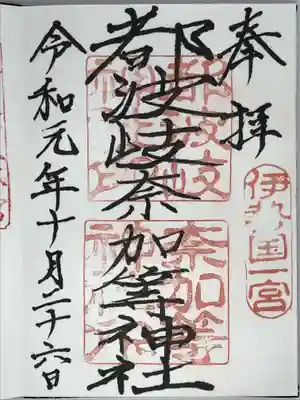 奉拝
伊勢国一宮
都波岐奈加等神社
都波岐
奈加等
令和元年十月二十六日